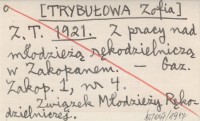 [TRYBUŁOWA Zofia]
Z. T. 1921. Z pracy nad
młodzieżą rękodzielniczą
w Zakopanem. — Gaz.
Zakop. 1, nr 4.
Związek Młodzieży Ręko-
dzielniczej.